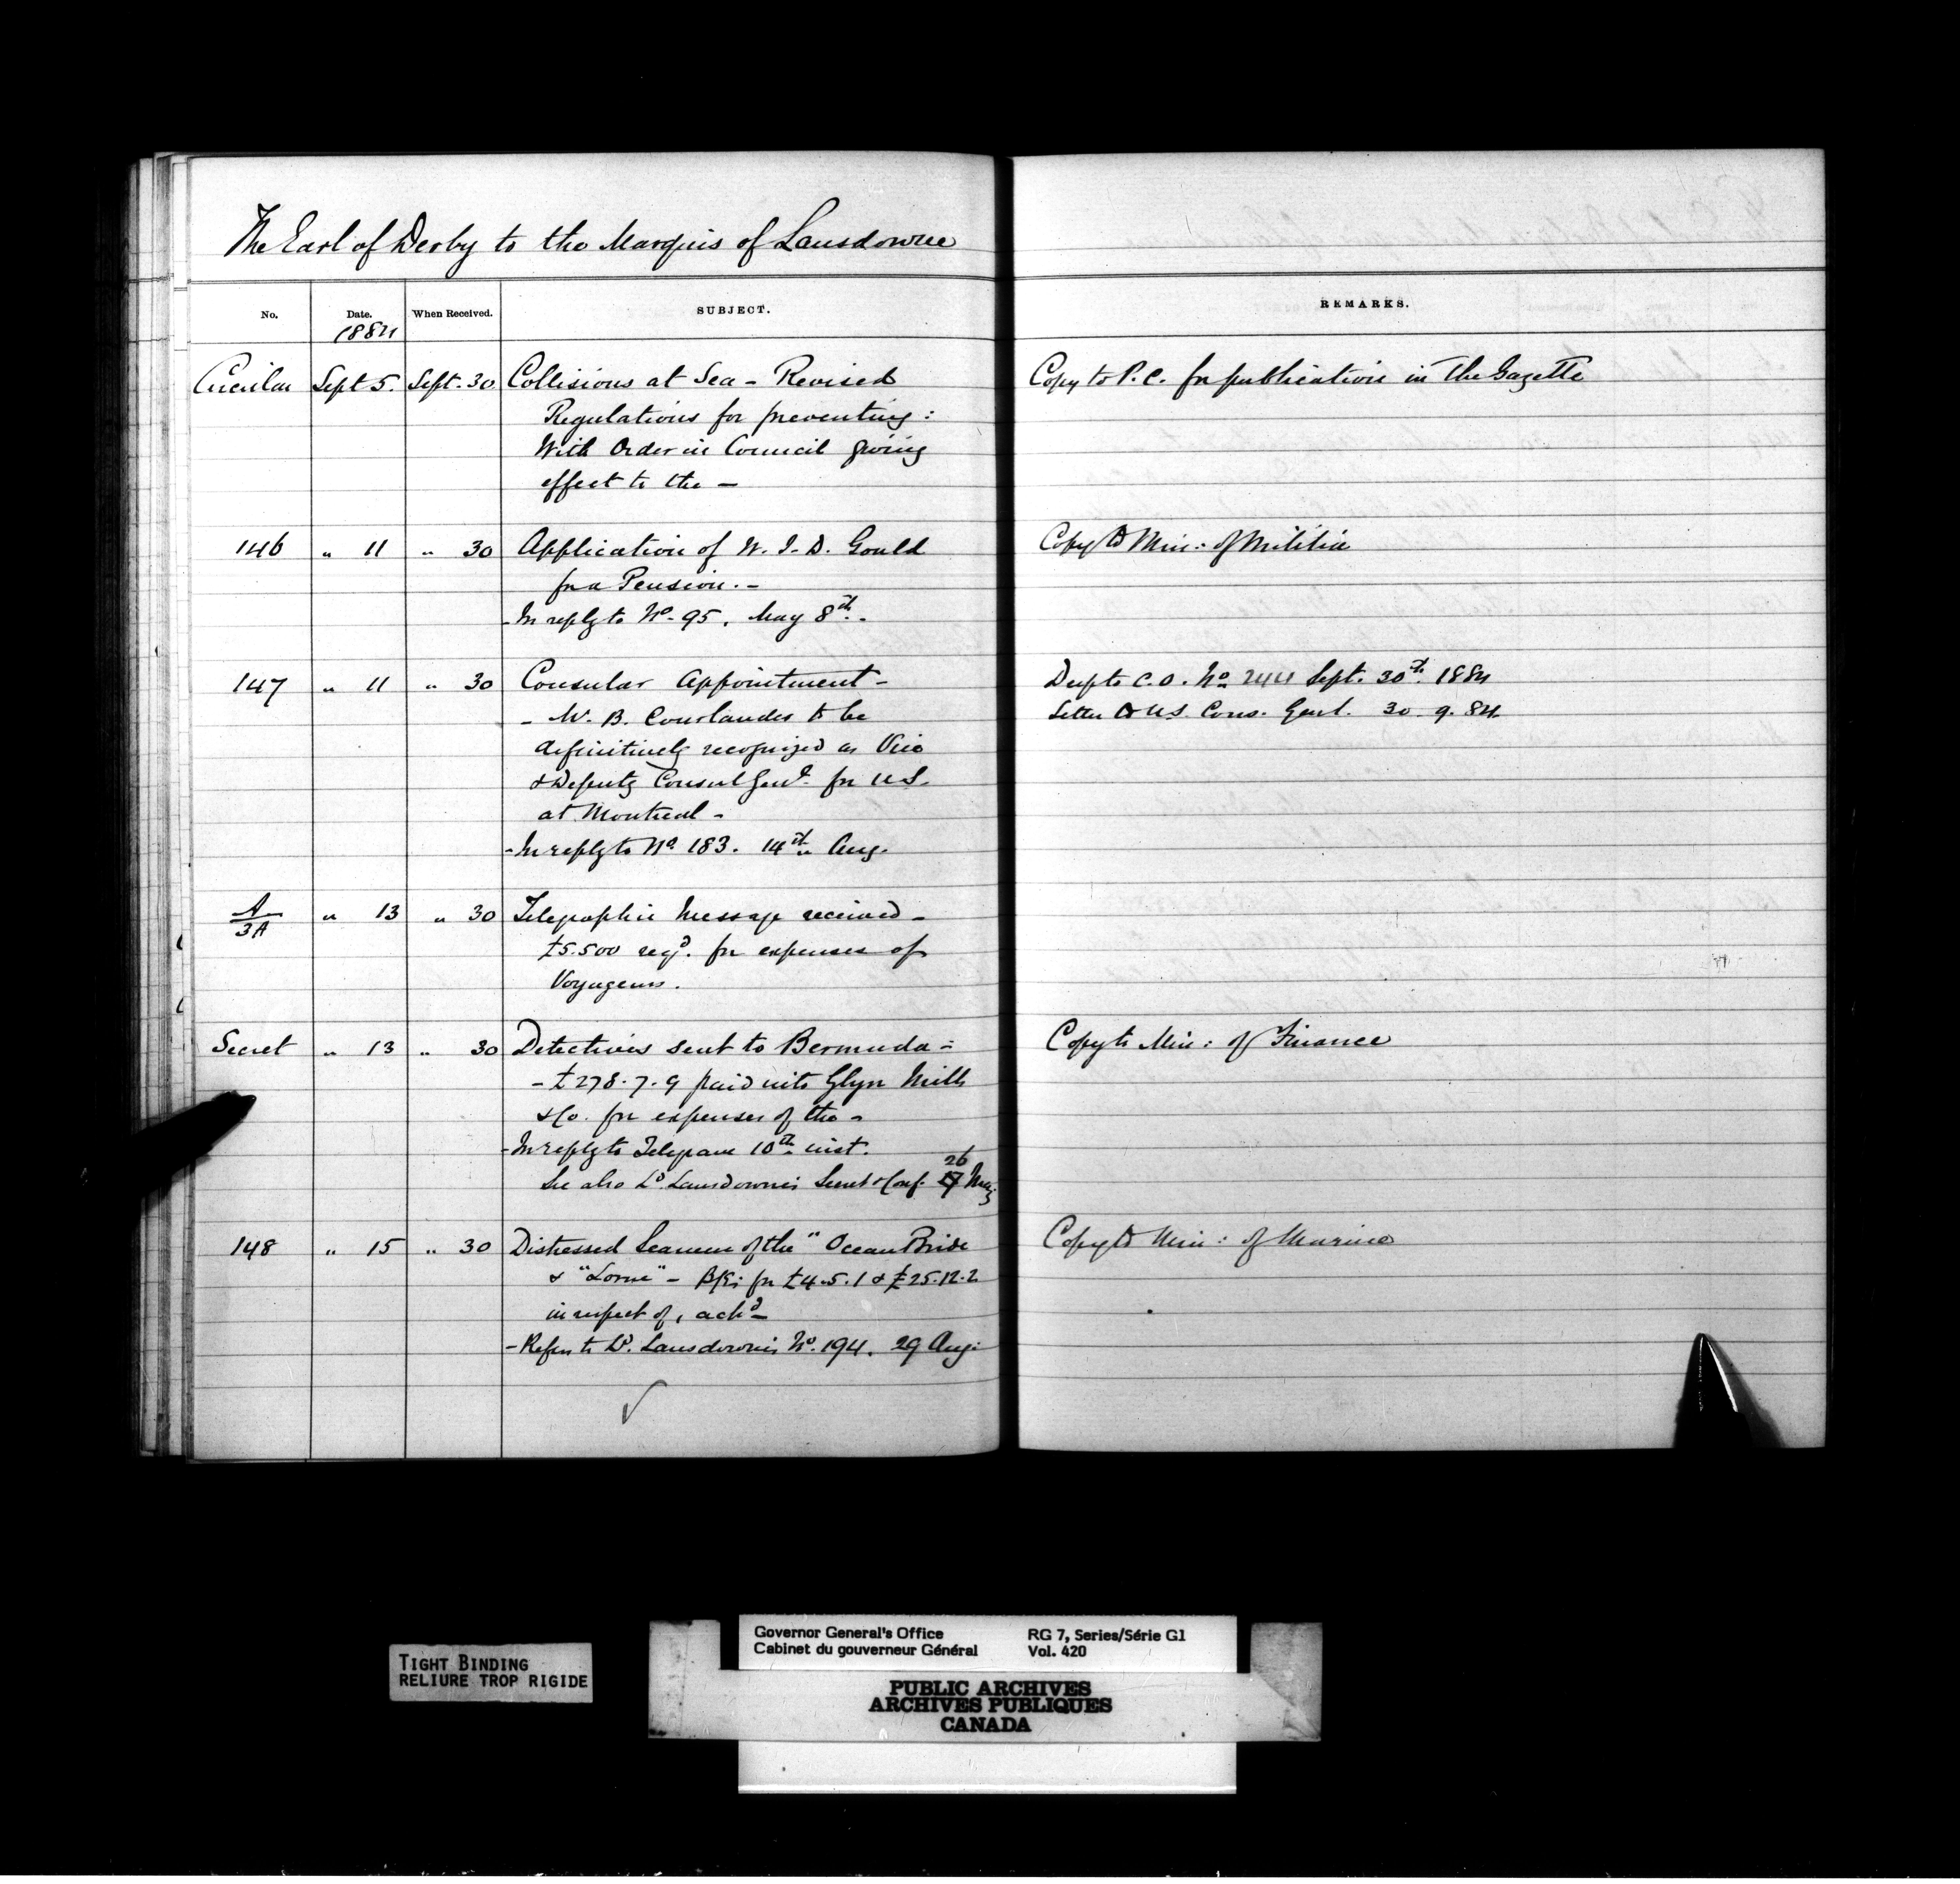 The Earl of Derby to the Marquis of Lansdowne
No. Date. When Received. SUBJECT. REMARKS.
1884
Circular Sept 5. Sept. 30 Collisions at Sea - Revised Copy to P.C. for publication in the Gazette
Regulations for preventing:
With Order in Council giving
effect to the -
146 " 11 " 30 Application of W. I. D. Gould Copy to Min: of Militia
for a Pension. -
- In reply to No. 95, May 8th. -
147 " 11 " 30 Consular Appointment - Desp to C.O. No 244 Sept. 30th 1884
- W. B. Courlander to be Letter to U.S. Cons. Genl. 30. 9. 84
definitively recognized as Vice
& Deputy Consul Genl. for U.S.
at Montreal -
- In reply to No. 183. 14th Aug.
A/3A " 13 " 30 Telegraphic Message received -
£5.500 reqd. for expenses of
Voyageurs.
Secret " 13 " 30 Detectives sent to Bermuda - Copy to Min: of Finance
- £278.7.9 paid into Glyn Mills
& Co. for expenses of the -
- In reply to Telegram 10th inst.
26
See also Ld. Lansdowne's Secret & Conf. 17 May
148 " 15 " 30 Distressed Seamen of the "Ocean Bride Copy to Min: of Marine
& "Lorne" - B/Es for £4.5.1 & £25.12.2
in respect of, ackd -
- Refers to Ld. Lansdowne's No. 194. 29 Aug:
TIGHT BINDING
RELIURE TROP RIGIDE
Governor General's Office RG 7, Series/Série G1
Cabinet du gouverneur Général Vol. 420
PUBLIC ARCHIVES
ARCHIVES PUBLIQUES
CANADA